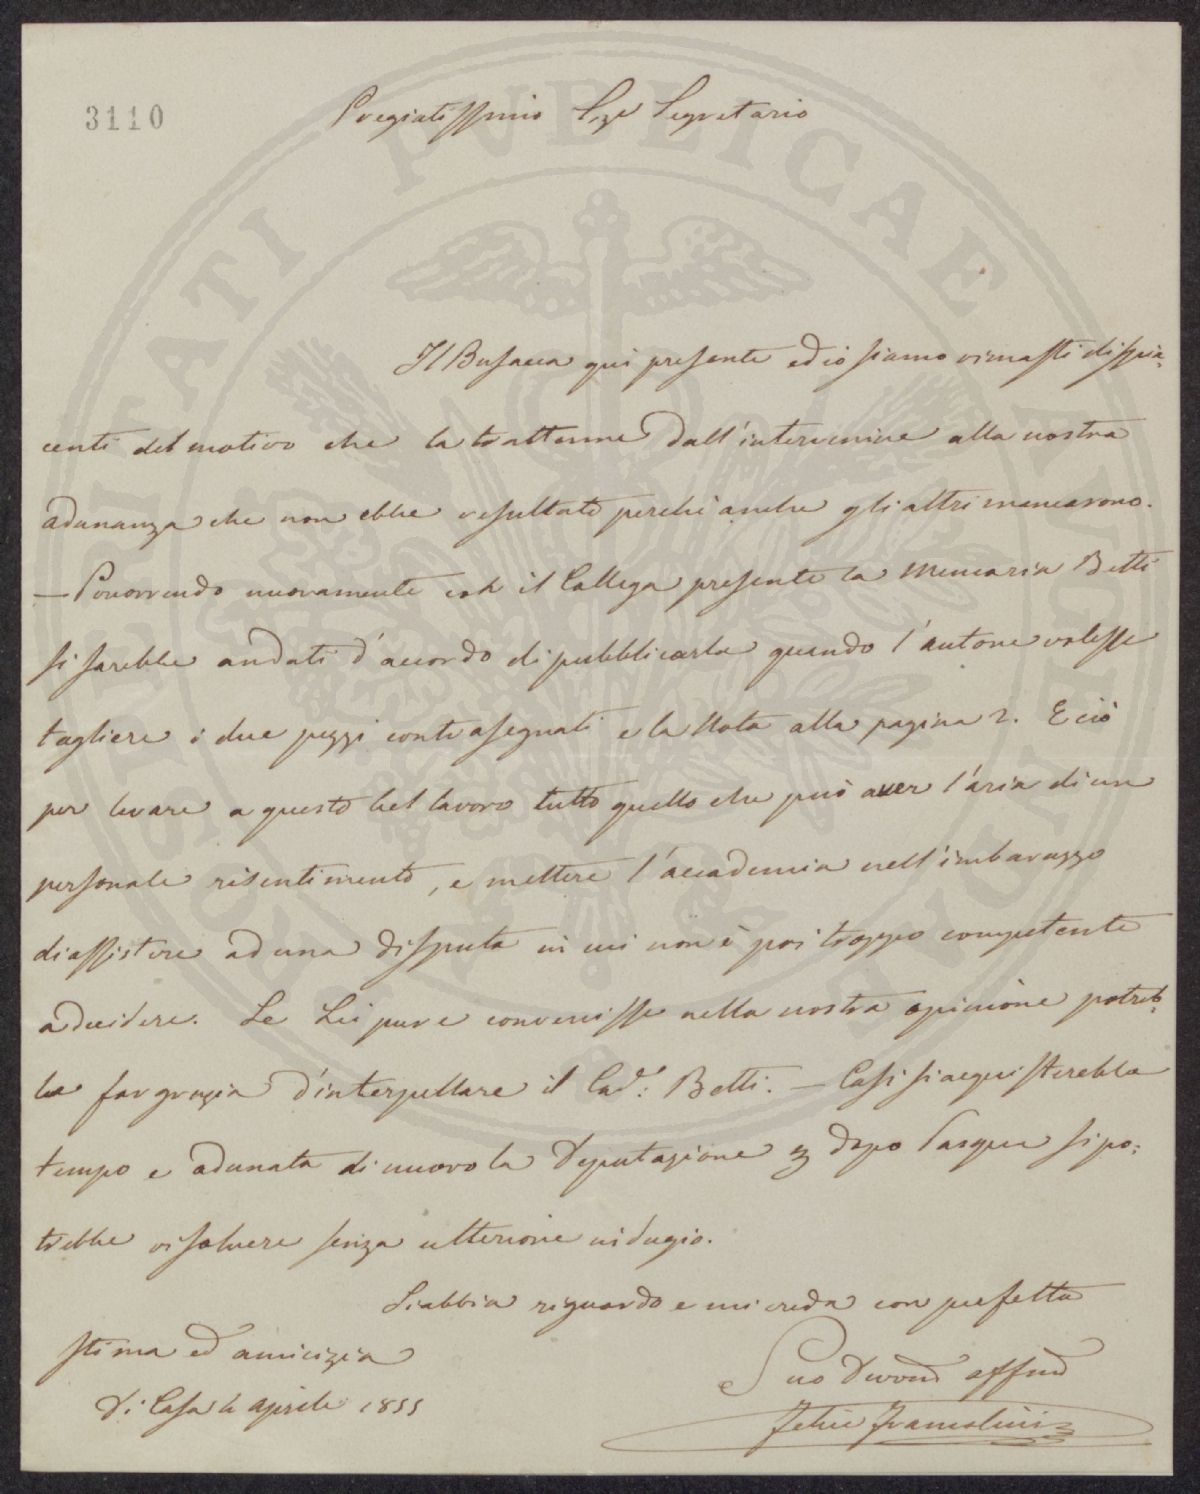 3110
Pregiatissimo Sigr Segretario
Il Busacca qui presente ed io siamo rimasti dispia-
centi del motivo che la trattenne dall'intervenire alla nostra
adunanza che non ebbe resultato perchè anche gli altri mancarono.
— Percorrendo nuovamente col il Collega presente la Memoria Betti
si sarebbe andati d'accordo di pubblicarla quando l'autore volesse
togliere i due pezzi contrasegnati e la Nota alla pagina 2. E ciò
per levare a questo bel lavoro tutto quello che può aver l'aria di un
personale risentimento, e mettere l'accademia nell'imbarazzo
di assistere ad una disputa in cui non è poi troppo competente
a decidere. Se Lei pure convenisse nella nostra opinione potreb-
be far grazia d'interpellare il Cav: Betti. — Così si acquisterebbe
tempo e adunata di nuovo la Deputazione dopo Pasqua si po-
trebbe risolvere senza ulteriore indugio.
Si abbia riguardo e mi creda con perfetta
stima ed amicizia
Di Casa 4 aprile 1855
Suo Devoto
Felice Francolini
SOCIETATI PUBLICAE